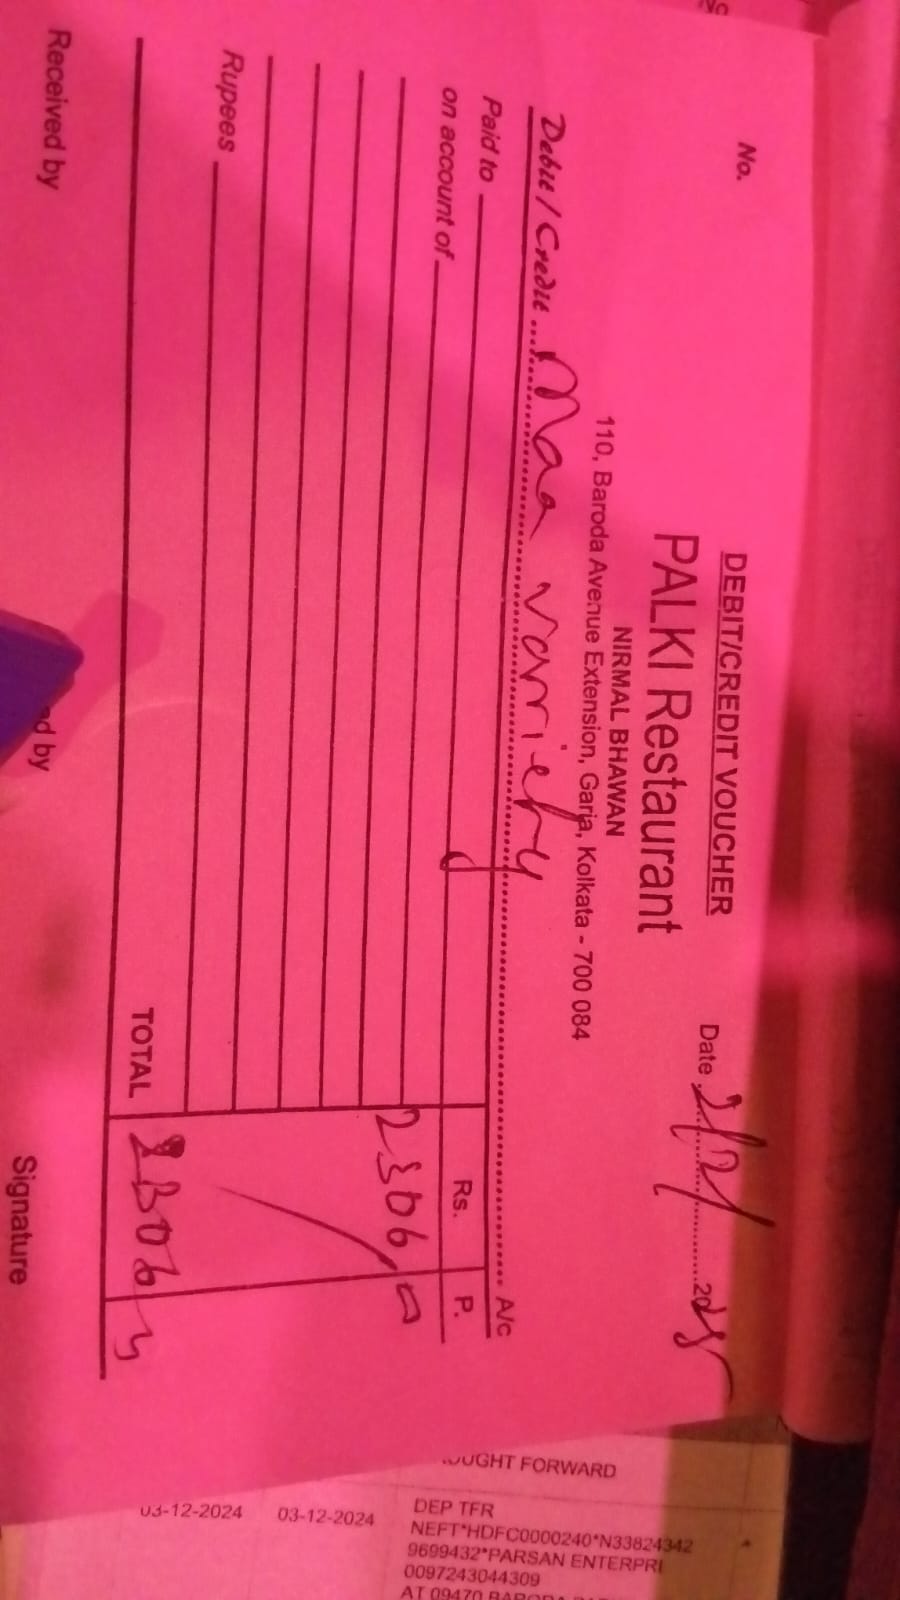 DEBIT/CREDIT VOUCHER
No.
PALKI Restaurant
Date 2/2/ 2025
NIRMAL BHAWAN
110, Baroda Avenue Extension, Garia, Kolkata - 700 084
Debit / Credit Maa variety A/c
Paid to Rs. P.
on account of 2306
Rupees
TOTAL 2306
Received by
ed by
Signature
OUGHT FORWARD
03-12-2024 03-12-2024 DEP TFR
NEFT*HDFC0000240*N33824342
9699432*PARSAN ENTERPRI
0097243044309
AT 09470